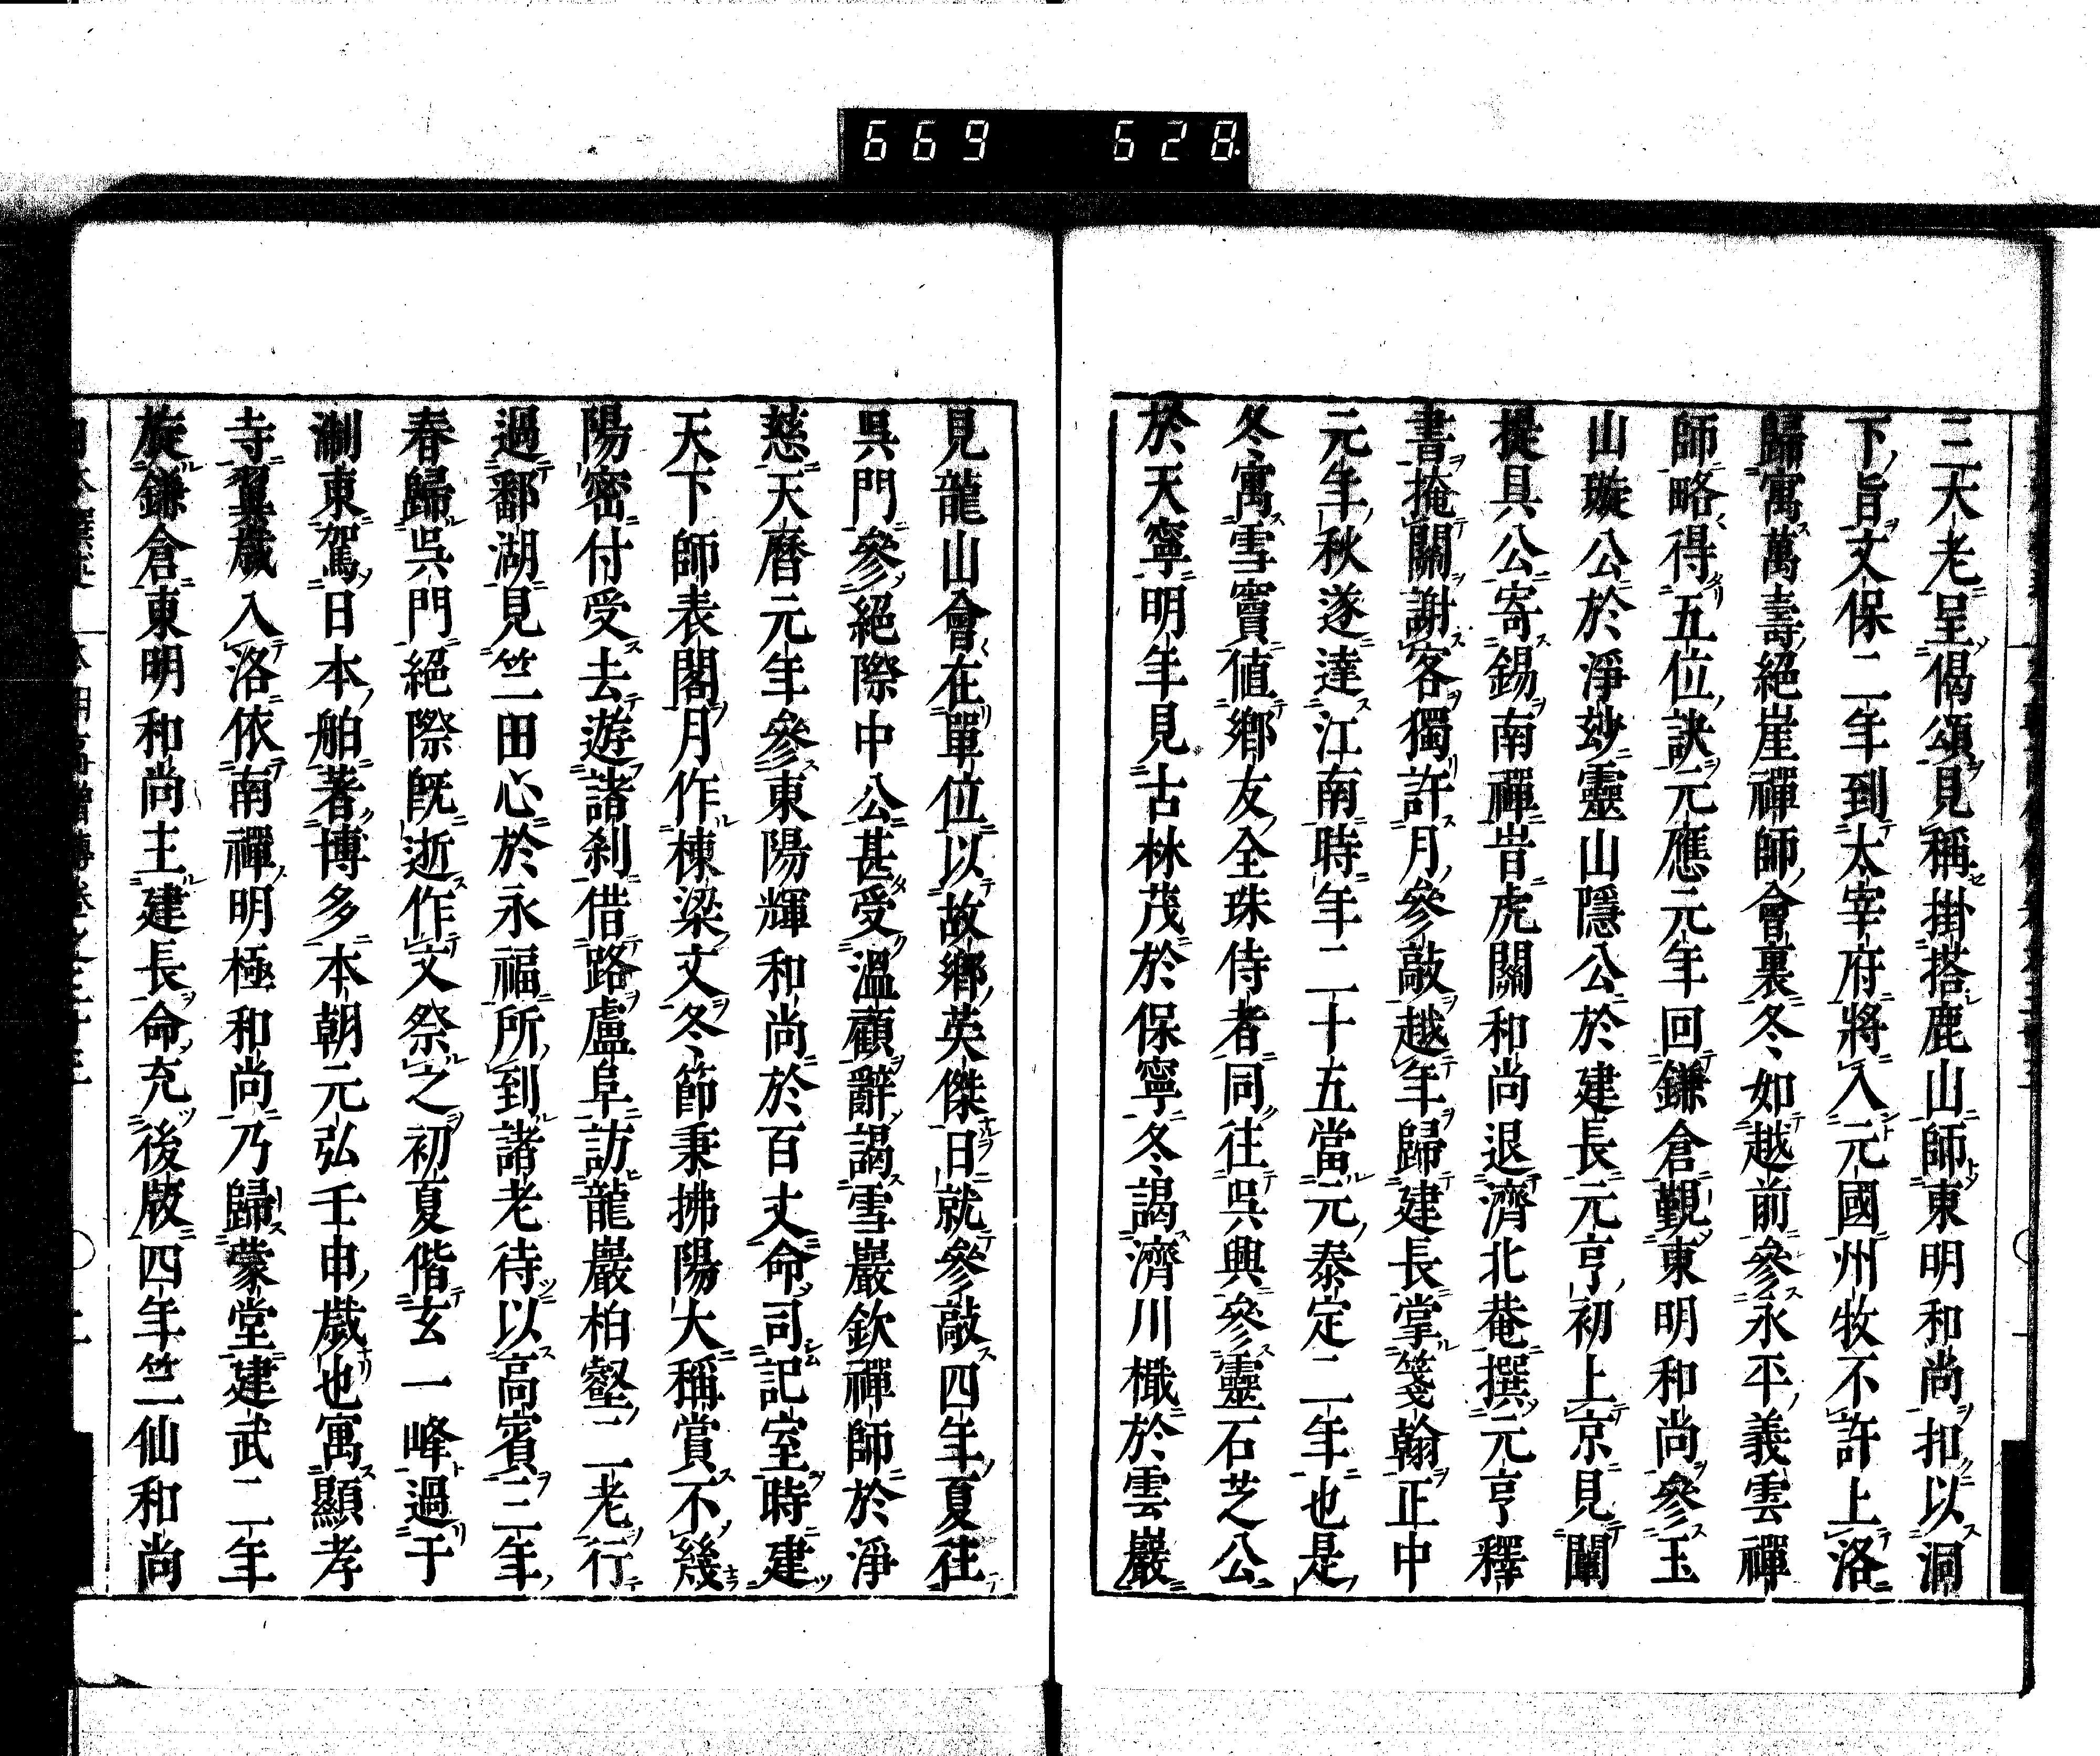 669 628.
三大老呈偈頌見稱掛搭鹿山師東明和尚扣以洞
下旨文保二年到太宰府將入元國州牧不許上洛
歸寓萬壽絕崖禪師會裏冬如越前參永平義雲禪
師略得五位訣元應元年回鎌倉覲東明和尚參玉
山璇公於淨玅靈山隱公於建長元亨初上京見闡
提具公寄錫南禪昔虎關和尚退濟北菴撰元亨釋
書掩關謝客獨許月參敲越年歸建長掌箋翰正中
元年秋遂達江南時年二十五當元泰定二年也是
冬寓雪竇值鄉友全珠侍者同往吳興參靈石芝公
於天寧明年見古林茂於保寧冬謁濟川檝於雲巖
見龍山會在單位以故鄉英傑日就參敲四年夏往
吳門參絕際中公甚受溫顧辭謁雪巖欽禪師於淨
慈天曆元年參東陽輝和尚於百丈命司記室時建
天下師表閣月作棟梁文冬節秉拂陽大稱賞不幾
陽密付受去遊諸剎借路盧阜訪龍巖柏壑二老行
過鄱湖見竺田心於永福所到諸老待以高賓三年
春歸吳門絕際既逝作文祭之初夏偕玄一峰過于
浙東駕日本舶著博多本朝元弘壬申歲也寓顯孝
寺翼歲入洛依南禪明極和尚乃歸蒙堂建武二年
旋鎌倉東明和尚主建長命充後版四年竺仙和尚